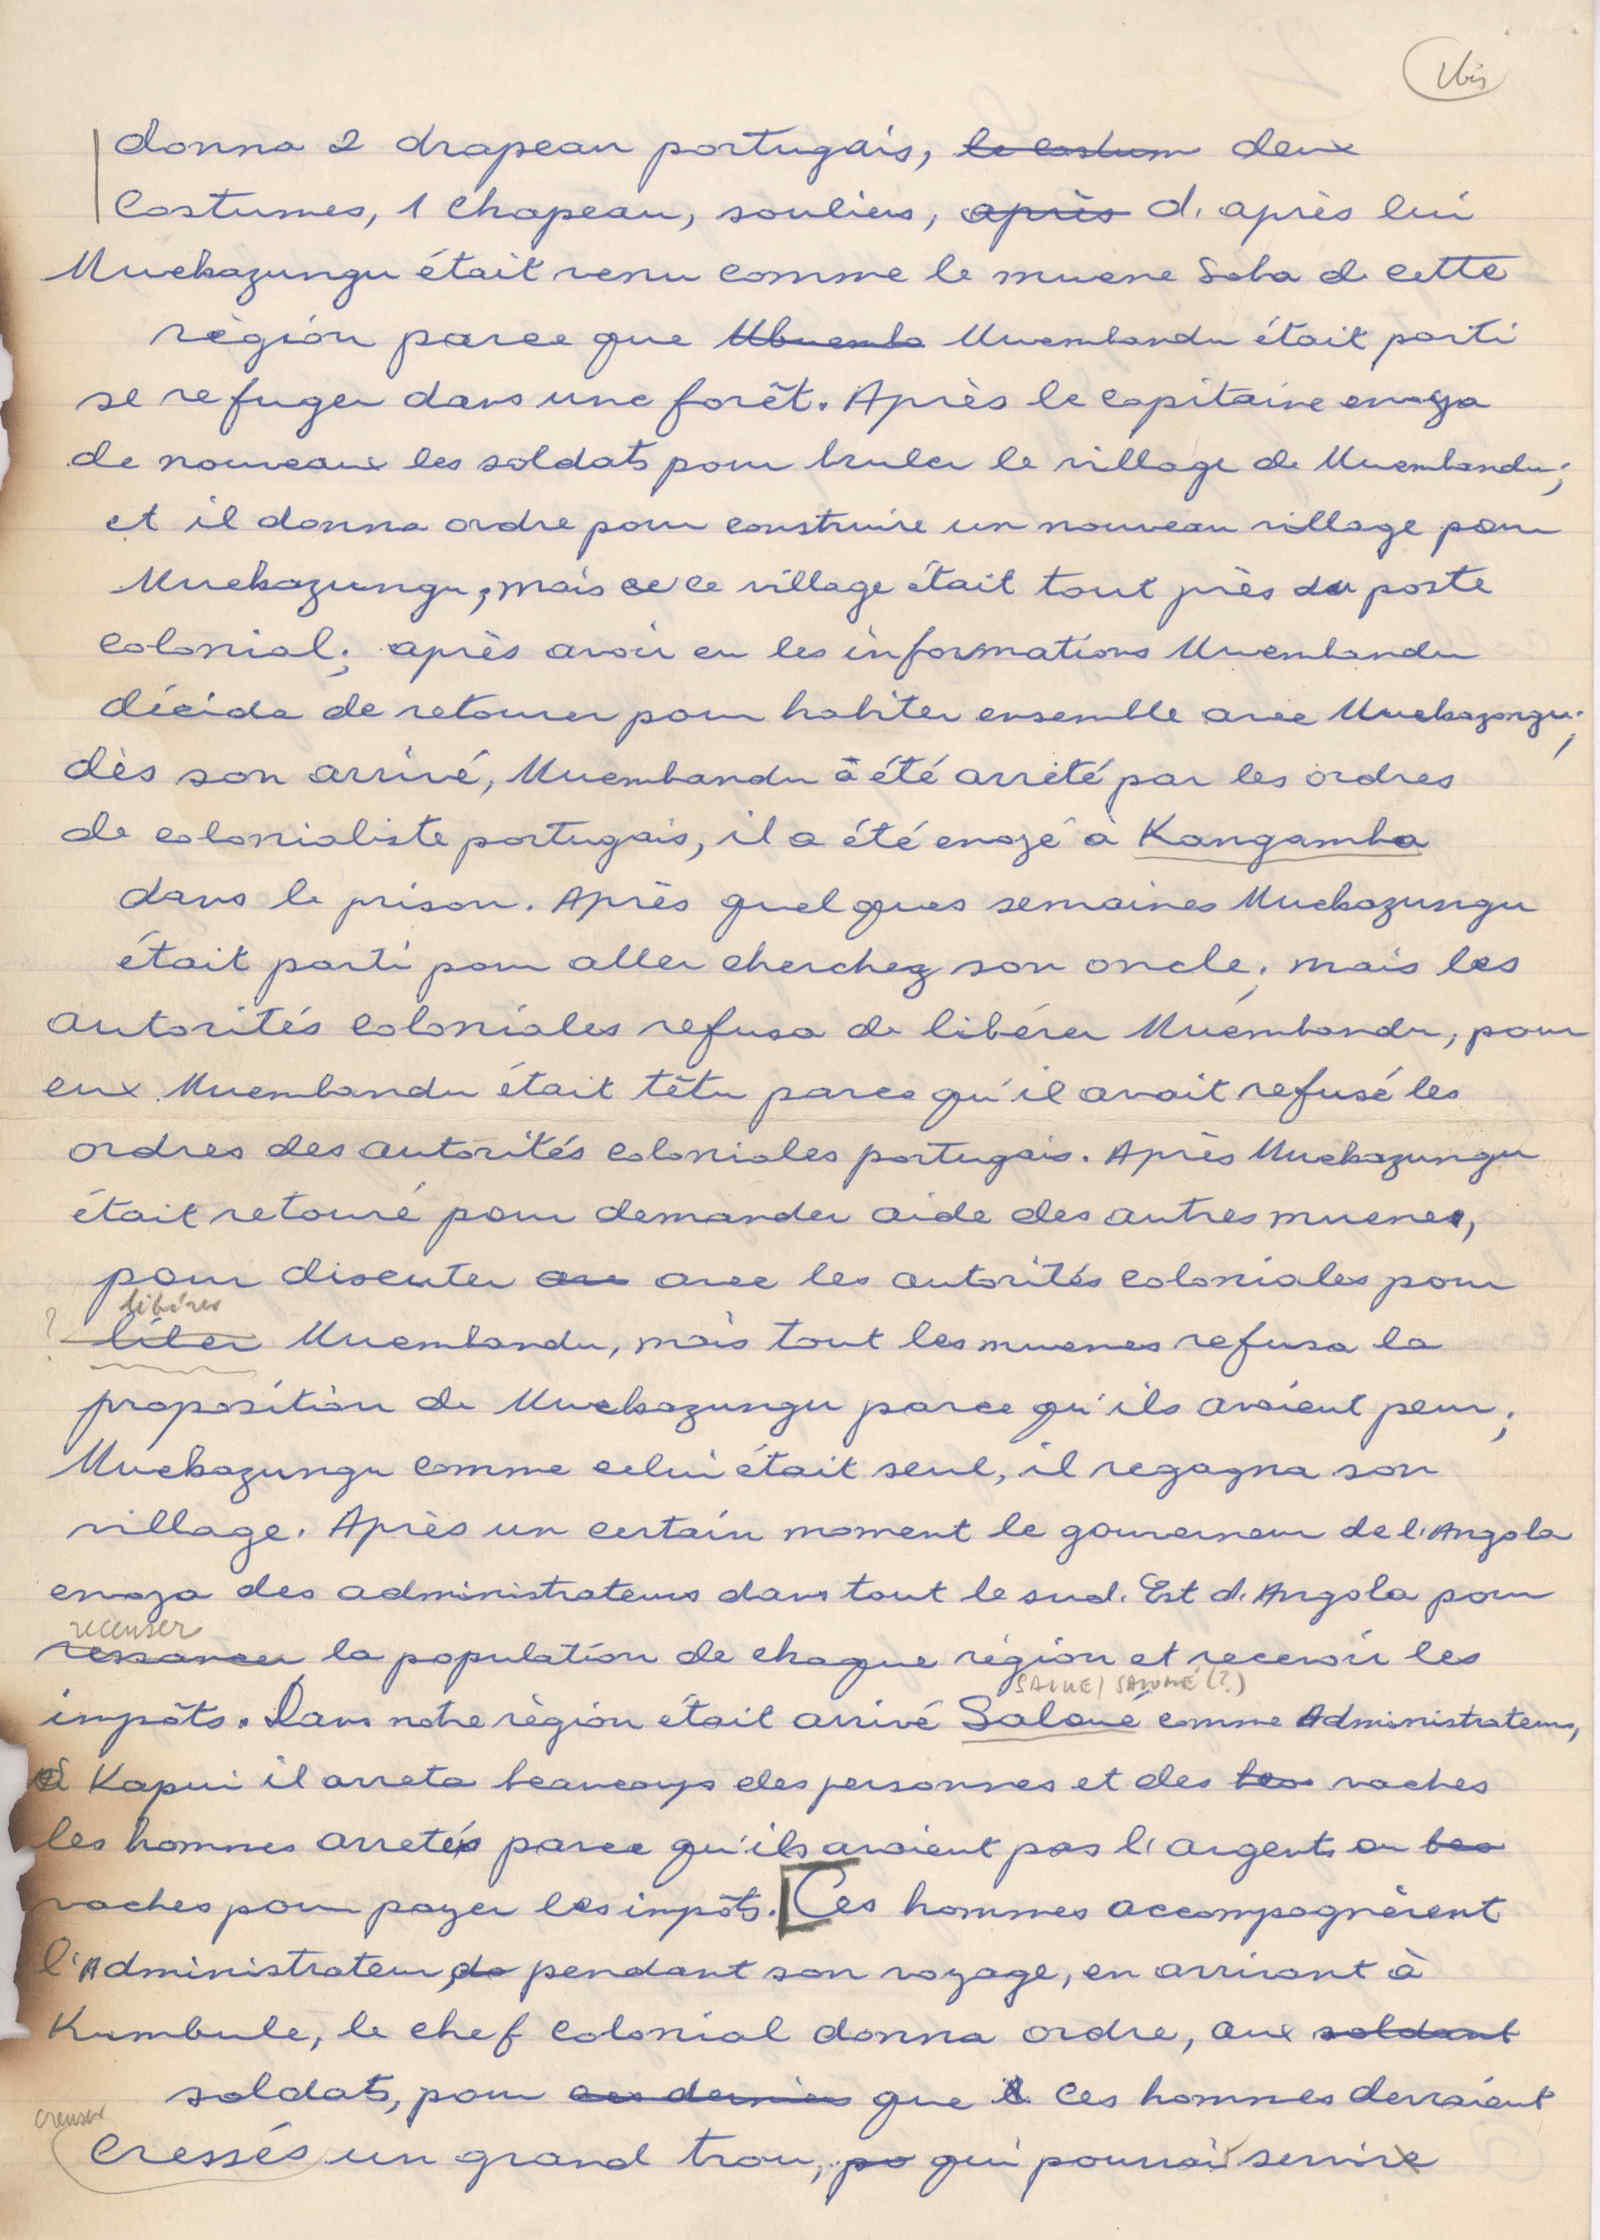 1bis
donna 2 drapeau portugais, le costum deux
Costumes, 1 Chapeau, souliers, après d'après lui
Muekazungu était venu comme le muene Soba de cette
règion parce que Mbuemba Muembandu était parti
se refuger dans une forêt. Après le capitaine envoya
de nouveaux les soldats pour bruler le village de Muembandu;
et il donna ordre pour construire un nouveau village pour
Muekazungu, mais ce village était tout près du poste
colonial; après avoir eu les informations Muembandu
décida de retourer pour habiter ensemble avec Muekazongu;
dès son arrivé, Muembandu a été arrêté par les ordres
de colonialiste portugais, il a été envoyé à Kangamba
dans le prison. Après quelques semaines Muekazungu
était parti pour aller cherchez son oncle; mais les
autorités coloniales refusa de libérer Muémbandu, pour
eux Muembandu était têtu parce qu'il avait refusé les
ordres des autorités coloniales portugais. Après Muekazungu
était retouré pour demander aide des autres muenes,
pour discuter ave avec les autorités coloniales pour
? libérer
liber Muembandu, mais tout les muenes refusa la
proposition de Muekazungu parce qu'ils avaient peur;
Muekazungu comme celui était seul, il regagna son
village. Après un certain moment le gouverneur de l'Angola
envoya des administrateurs dans tout le sud. Est d'Angola pour
recenser
ressancer la population de chaque région et recevoir les
SALUE/ SALOMÉ (?)
impôts. Dans notre règion était arrivé Saloué comme Administrateurs,
à Kapui il arreta beaucoups des personnes et des les vaches
les hommes arretés parce qu'ils avaient pas l'argents ou les
vaches pour payer les impôts. [Ces hommes accompagnèrent
l'Administrateur, da pendant son voyage, en arrivant à
Kumbule, le chef colonial donna ordre, aux soldant
soldats, pour ces derniers que ces hommes devraient
creuser
cressés un grand trou, po qui pourrai servire